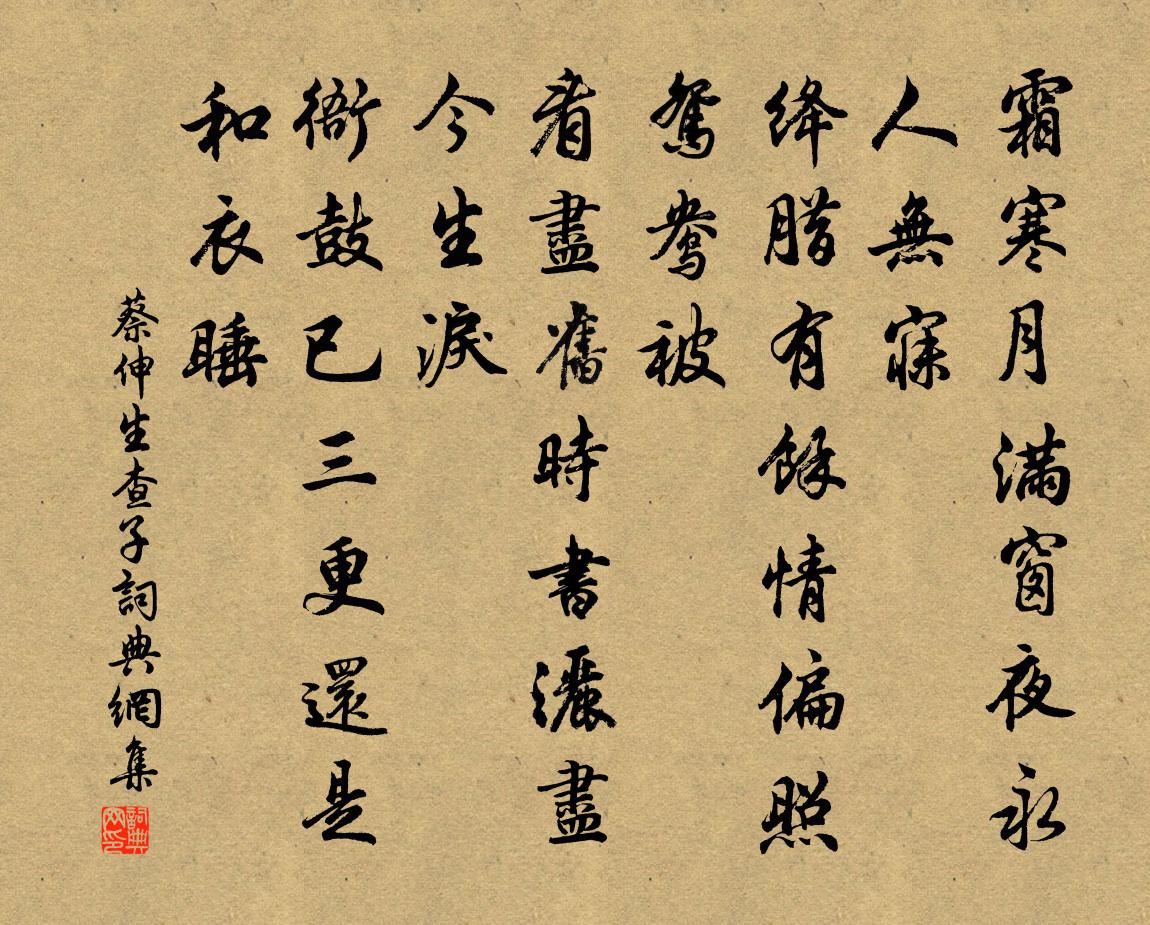 霜寒月滿窗夜永
人無寐
绛腊有餘情偏照
鴛鴦被
看盡舊時書灑盡
今生淚
衙鼓已三更還是
和衣睡
蔡伸生查子詞典網集
詞典
网印